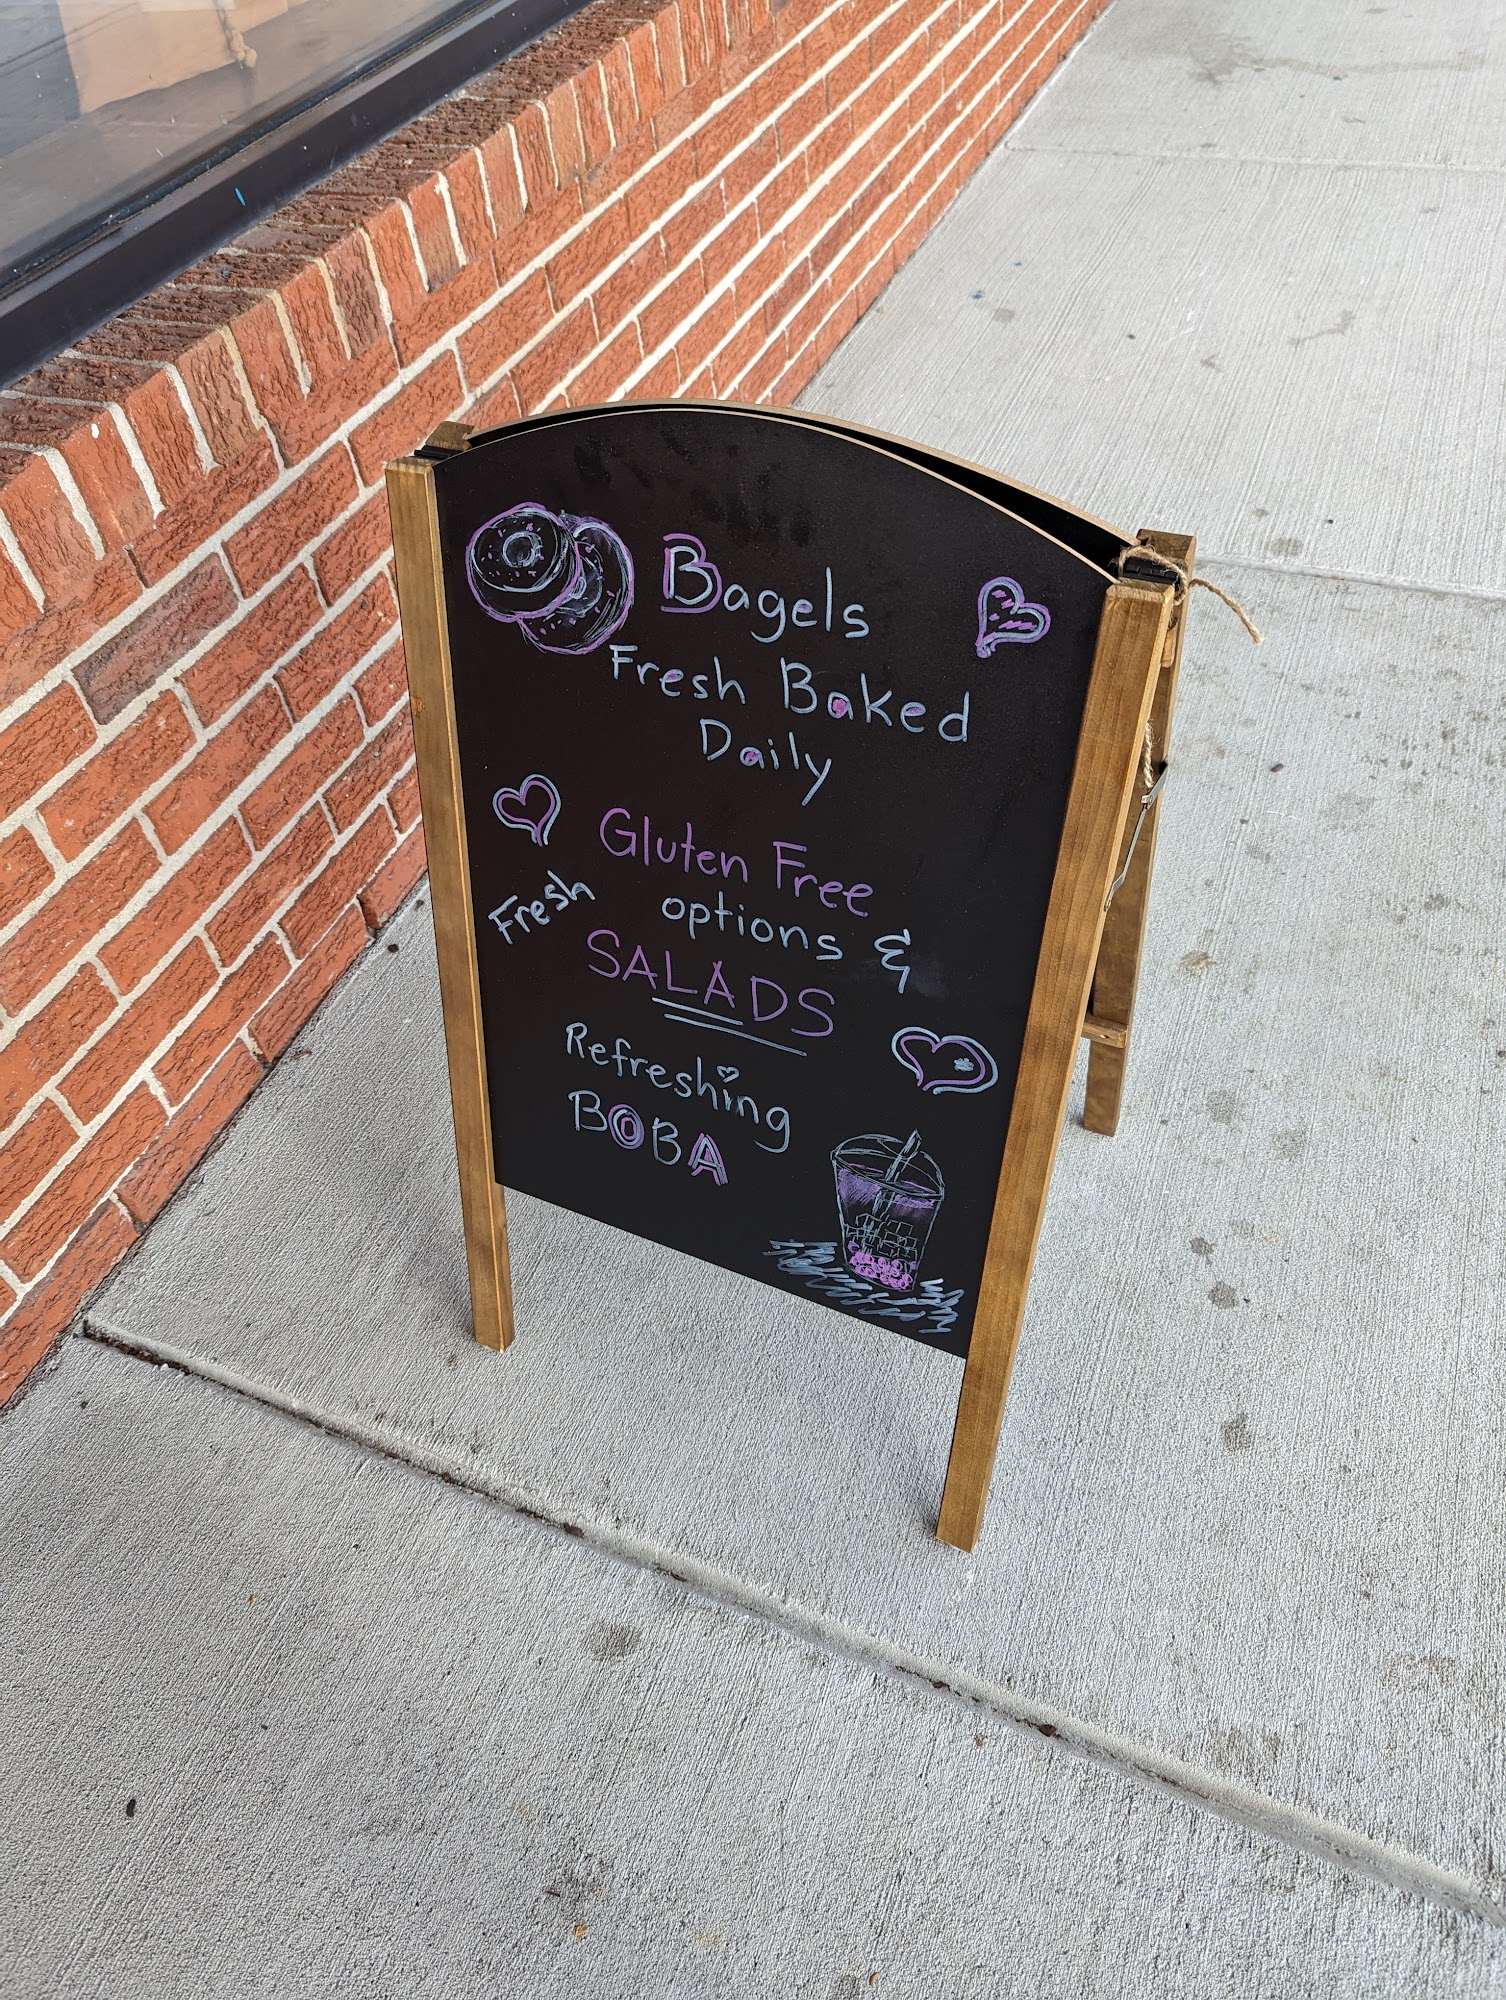 Bagels
Fresh Baked
Daily
Gluten Free
options &
Fresh
SALADS
Refreshing
BOBA